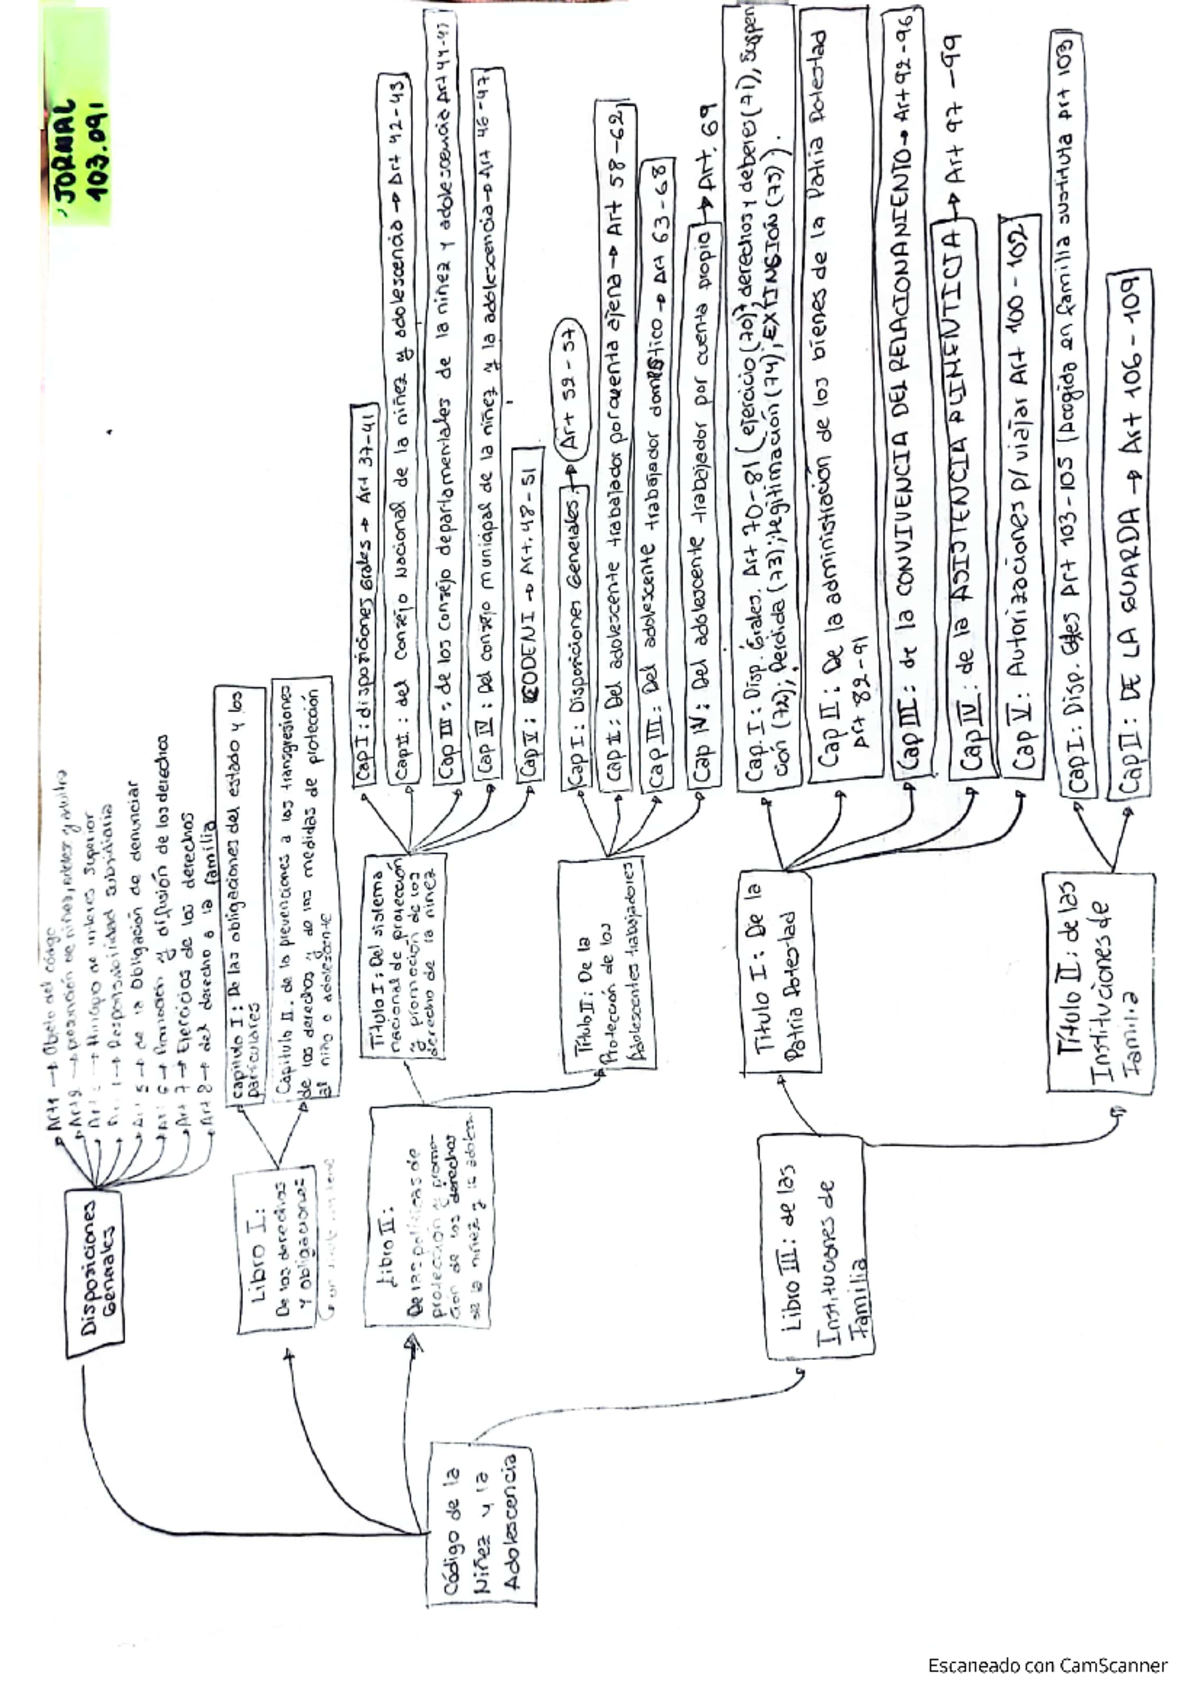 'JORNAL
103.091
Código de la
Niñez y la
Adolescencia
Disposiciones
Generales
Art 1 → Objeto del código
Art 2 → presunción de niñez,
Art → Principio de interes Superior
→ Responsabilidad subsidiaria
Art 5 → de la Obligación de denunciar
Art 6 → Promoción y difusión de los derechos
Art 7 → Ejercicios de los derechos
Art 8 → del derecho a la familia
Libro I:
De los derechos
y obligaciones
capitulo I: De las obligaciones del estado y los
particulares
Capitulo II. de la prevenciones a las transgresiones
de los derechos y de las medidas de protección
al niño o adolescente
Libro II:
De las políticas de
protección y promo-
cion de los derechos
de la niñez y la adolen
Titulo I: Del sistema
nacional de protección
y promoción de los
derecho de la niñez
Cap I: disposiciones Grales → Art 37-41
Cap II: del Consejo Nacional de la niñez y adolescencia → Art 42-43
Cap III: de los consejo departamentales de la niñez y adolescencia Art 44-45
Cap IV: Del consejo municipal de la niñez y la adolescencia → Art 46-47
Cap V: CODENI → Art. 48-51
Titulo II: De la
Protección de los
Adolescentes trabajadores
Cap I: Disposiciones Generales → Art 52-57
Cap II: Del adolescente trabajados por cuenta ajena → Art 58-62
Cap III: Del adolescente trabajador doméstico → Art 63-68
Cap IV: Del adolescente trabajador por cuenta propia → Art. 69
Libro III: de las
Instituciones de
Familia
Titulo I: De la
Patria Potestad
Cap. I: Disp. Grales. Art 70-81 (ejercicio (70); derechos y deberes (71), suspen
ción (72); Perdida (73); legitimación (74), EXTINSIÓN (75)).
Cap II: De la administración de los bienes de la Patria Potestad
Art 82-91
Cap III: de la CONVIVENCIA DEL RELACIONANIENTO → Art 92-96
Cap IV: de la ASISTENCIA ALIMENTICIA → Art 97-99
Cap V: Autorizaciones p/ viajar Art 100-102
Título II: de las
Instituciones de
familia
Cap I: Disp. Gles Art 103-105 (Acogida en familia sustituta Art 103
Cap II: DE LA GUARDA → Art 106-109
Escaneado con CamScanner